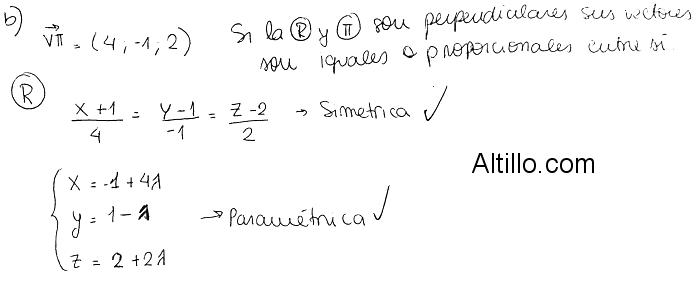 b) Vπ = (4; -1; 2) Si la Ⓡ y Ⓟ son perpendiculares sus vectores
son iguales o proporcionales entre sí.
Ⓡ
X+1/4 = Y-1/-1 = Z-2/2 → Simetrica ✓
Altillo.com
X = -1 + 4λ
y = 1 - λ → Paramétrica ✓
Z = 2 + 2λ